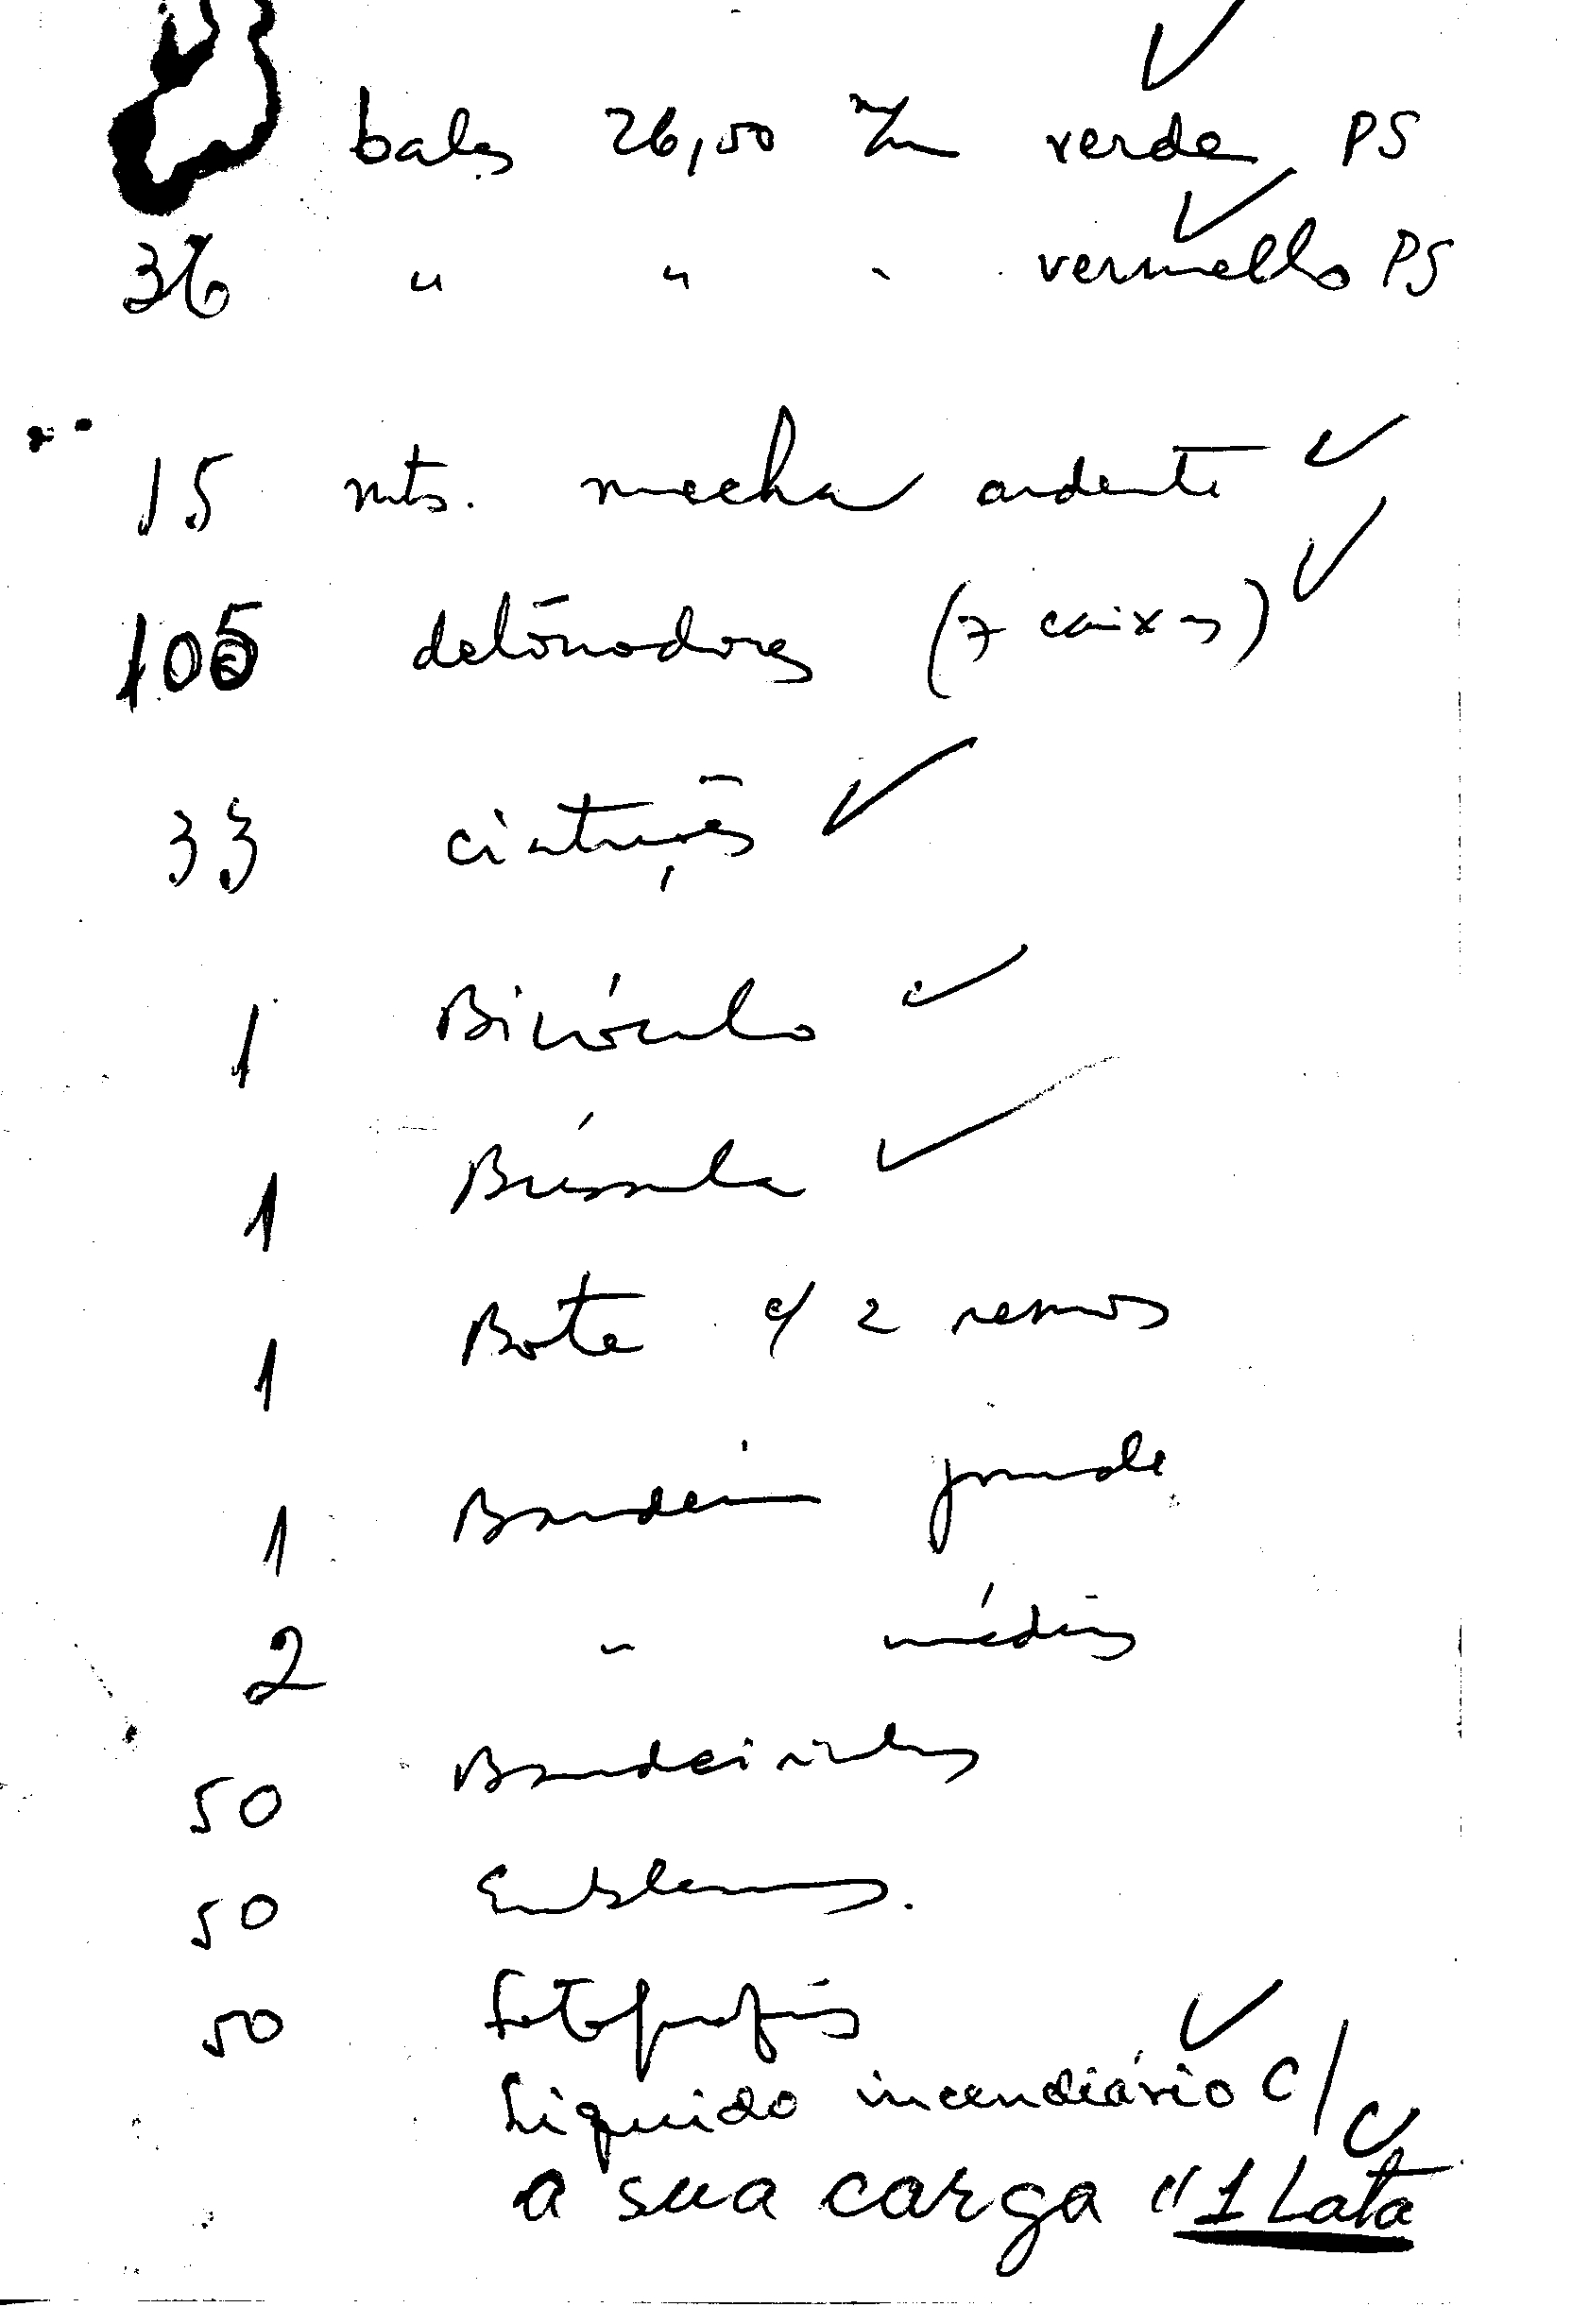 balas 26,50 m/m verde PS
36 " " " vermelho PS
15 mts. mecha ardente
105 detonadores (7 caixas)
33 cinturões
1 Binóculo
1 Bússula
1 Bote c/ 2 remos
1 Bandeira grande
2 " médias
50 Bandeirinhas
50 Emblemas.
50 Fotografias
Liquido incendiário C/
a sua carga "1 Lata